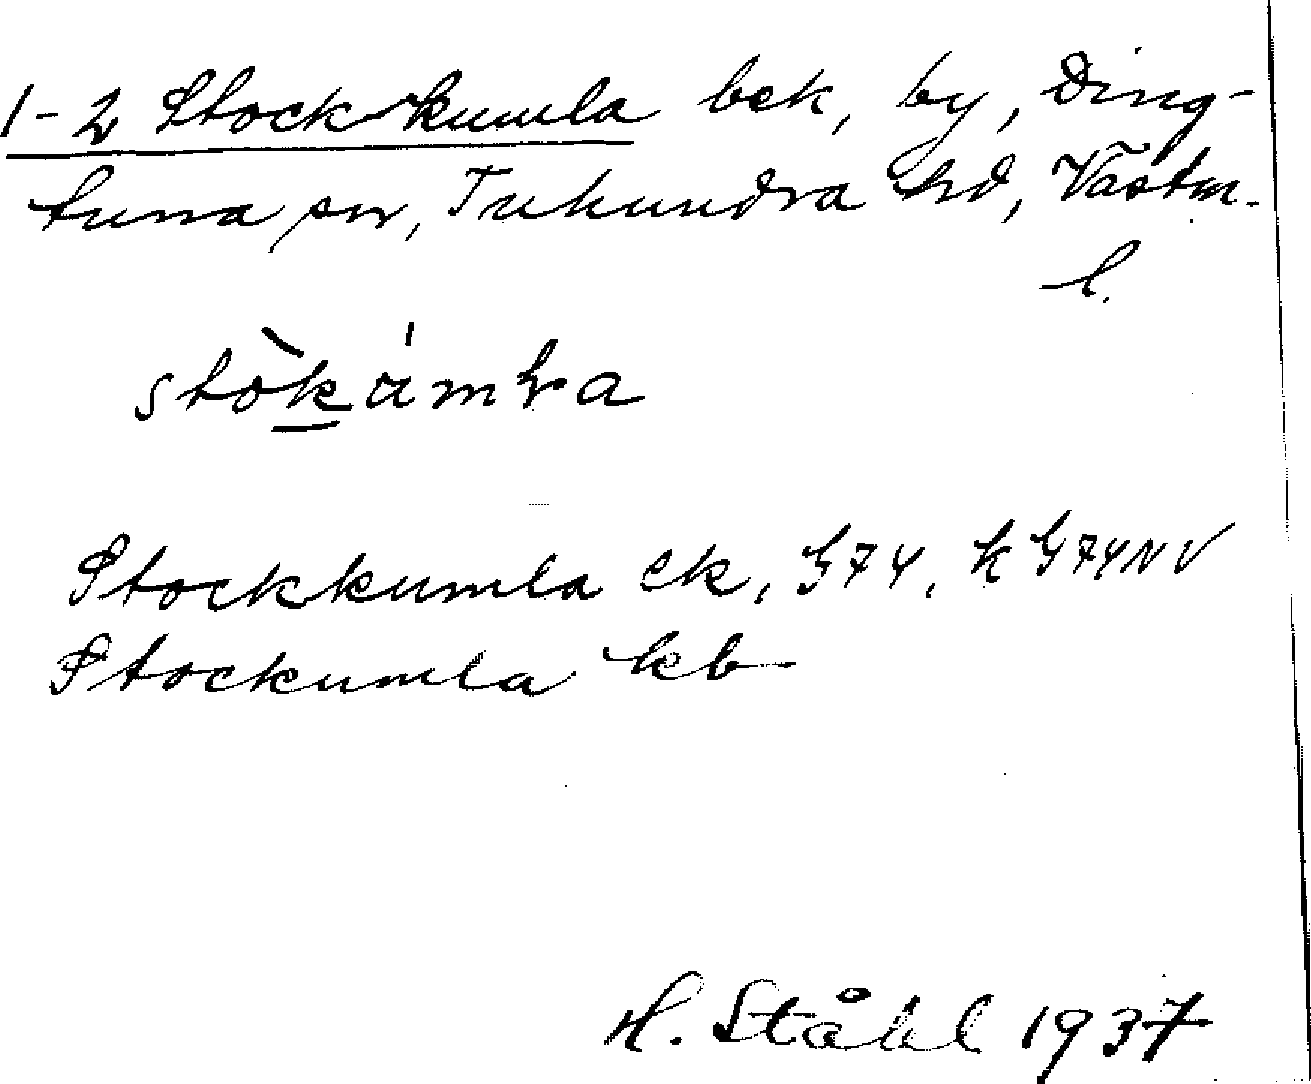 1-2 Stockkumla bek, by, Ding-
tuna sn, Tuhundra hd, Västm.
l.
Stockkumla ek, G 74, k G 74 NV
Stockumla kb
H. Ståhl 1937